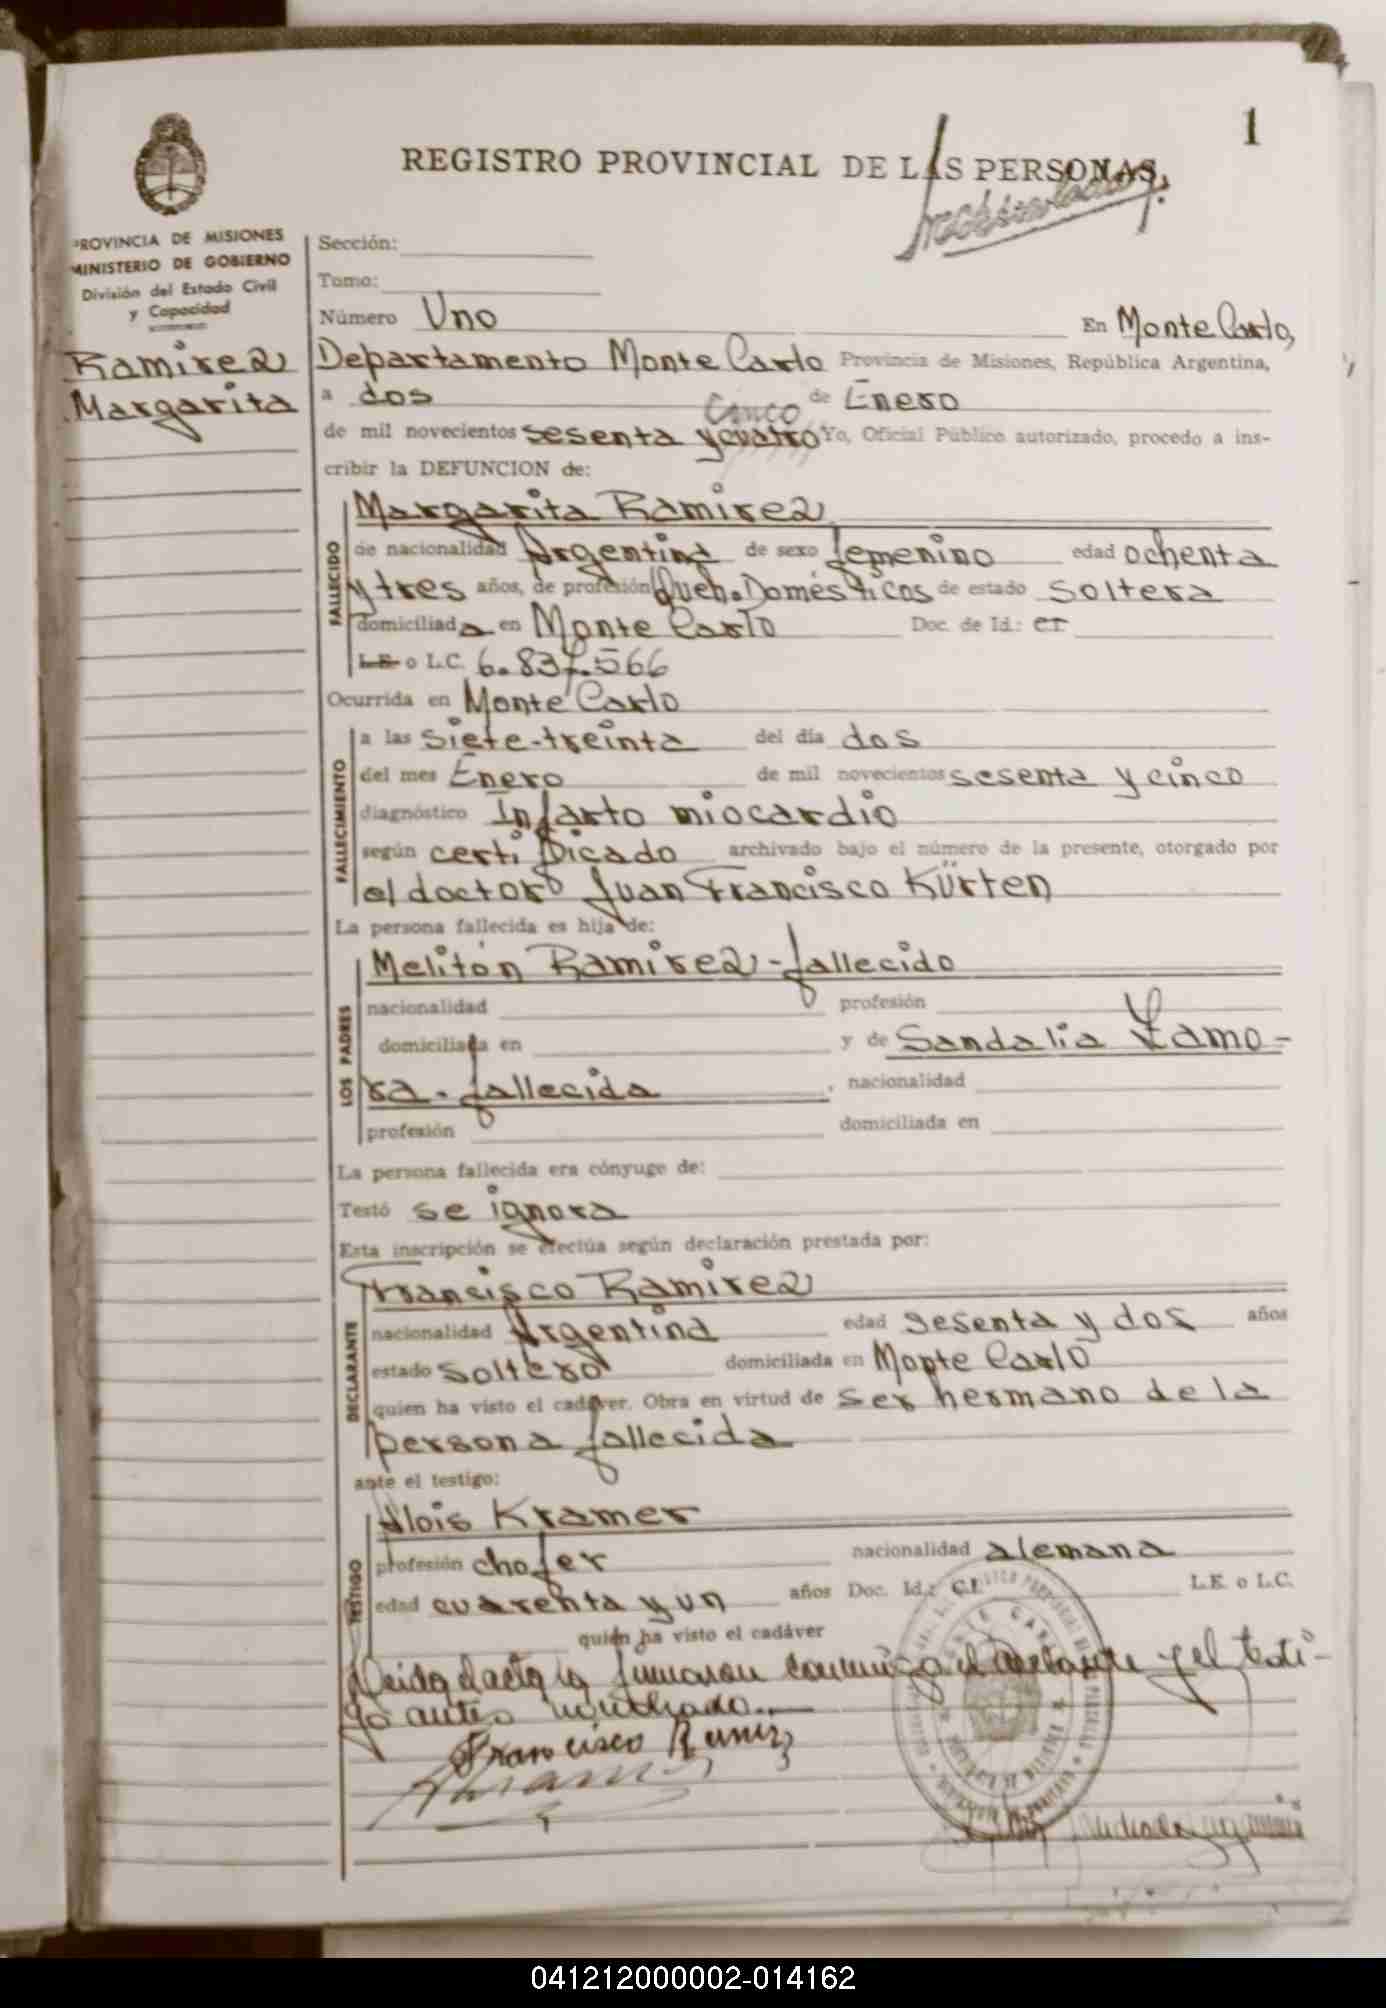 1
REGISTRO PROVINCIAL DE LAS PERSONAS
PROVINCIA DE MISIONES
MINISTERIO DE GOBIERNO
División del Estado Civil
y Capacidad
Ramirez
Margarita
Sección:
Tomo:
Número Uno En Monte Carlo,
Departamento Monte Carlo Provincia de Misiones, República Argentina,
a dos de Enero
cinco
de mil novecientos sesenta y cuatro Yo, Oficial Público autorizado, procedo a ins-
cribir la DEFUNCION de:
FALLECIDO
Margarita Ramirez
de nacionalidad Argentina de sexo femenino edad ochenta
y tres años, de profesión Queh. Domésticos de estado soltera
domiciliada en Monte Carlo Doc. de Id.:
L.E. o L.C. 6.837.566
Ocurrida en Monte Carlo
FALLECIMIENTO
a las siete-treinta del día dos
del mes Enero de mil novecientos sesenta y cinco
diagnóstico Infarto miocardio
según certificado archivado bajo el número de la presente, otorgado por
el doctor Juan Francisco Kürten
La persona fallecida es hija de:
LOS PADRES
Melitón Ramirez - fallecido
nacionalidad profesión
domiciliada en y de Sandalia Zamo-
ra - fallecida, nacionalidad
profesión domiciliada en
La persona fallecida era cónyuge de:
Testó se ignora
Esta inscripción se efectúa según declaración prestada por:
DECLARANTE
Francisco Ramirez
nacionalidad Argentina edad sesenta y dos años
estado soltero domiciliada en Monte Carlo
quien ha visto el cadáver. Obra en virtud de ser hermano de la
persona fallecida
ante el testigo:
TESTIGO
Alois Kramer
profesión chofer nacionalidad alemana
edad cuarenta y un años Doc. Id.: C.I. L.E. o L.C.
quien ha visto el cadáver
Leida el acta la firmaron conmigo el declarante y el testi-
go antes nombrado.
Francisco Ramirez
041212000002-014162